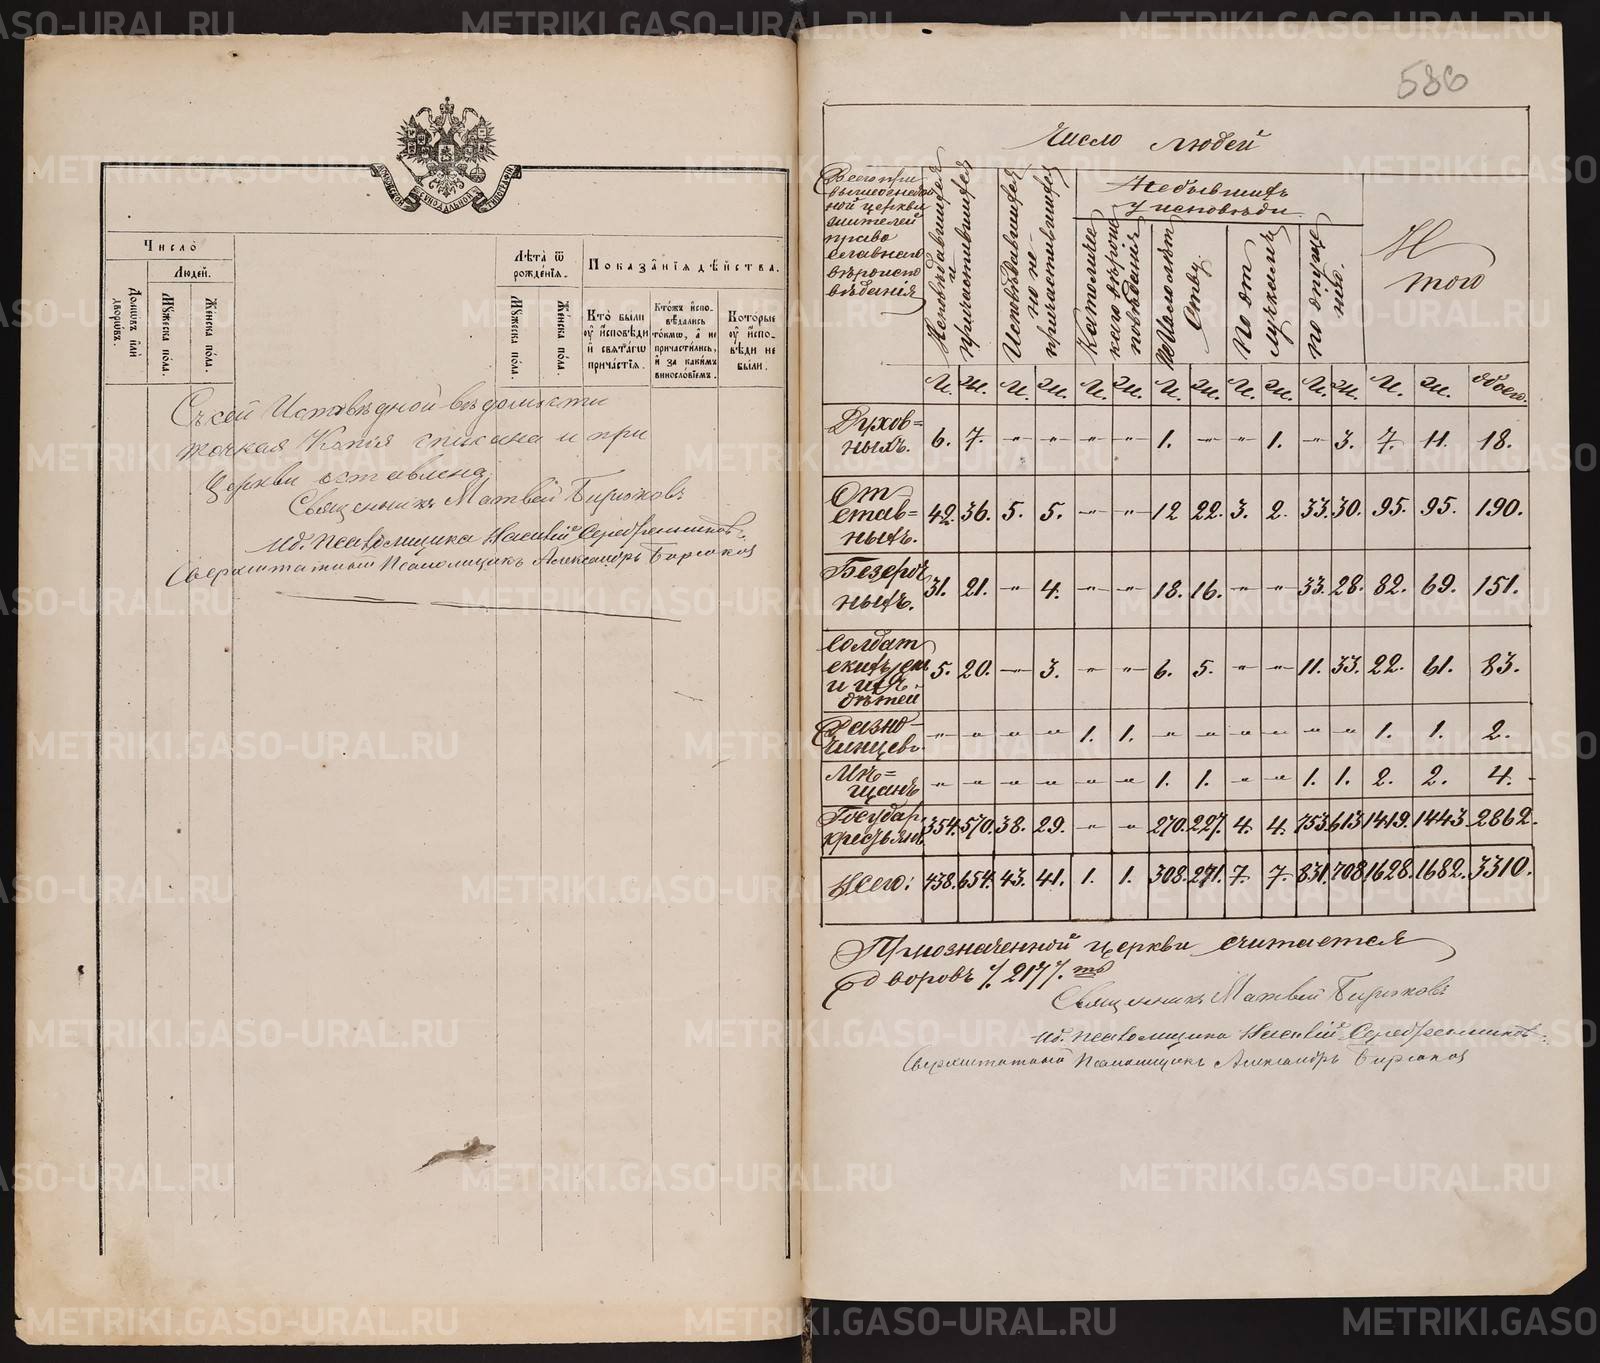 Число
Людей.
Домовъ или дворовъ.
Мужеска пола.
Женска пола.
Лѣта ѿ рожденїя.
Мужеска пола.
Женска пола.
Показанїя дѣйства.
Кто были оу исповѣди и святагѡ причастїя.
Ктожъ исповѣдались токмѡ, а не причастились, и за какимъ винословїемъ.
Которые оу исповѣди не были.
Съ сей Исповѣдной вѣдомости
точная Копія списана и при
Церкви оставлена
Священникъ Матвей Бирюковъ
И.д. псаломщика Василій Серебренниковъ.
Сверхштатный Псаломщикъ Александръ Бирюковъ
586
Число людей
Всего при
вышеозначен
ной церкви
жителей
право
славнаго
вѣроиспо
вѣданія
Исповѣдавшихся и причастившихся
Исповѣдавшихся но не причастившихся
Небывшихъ
у исповѣди
Католичес
каго вѣроис
повѣданія
По малолѣт
ству.
По от
лучкамъ
по опуще
нію.
И
того
М. Ж. М. Ж. М. Ж. М. Ж. М. Ж. М. Ж. М. Ж. обоего.
Духов=
ныхъ. 6. 7. -"- -"- -"- -"- 1. -"- -"- 1. -"- 3. 7. 11. 18.
От
став=
ныхъ. 42. 36. 5. 5. -"- -"- 12 22. 3. 2. 33. 30. 95. 95. 190.
Безсроч
ныхъ. 31. 21. -"- 4. -"- -"- 18. 16. -"- -"- 33. 28. 82. 69. 151.
Солдат
скихъ жен
и ихъ
дѣтей 5. 20. -"- 3. -"- -"- 6. 5. -"- -"- 11. 33. 22. 61. 83.
Разно
чинцевъ -"- -"- -"- -"- 1. 1. -"- -"- -"- -"- -"- -"- 1. 1. 2.
Мѣ=
щанъ -"- -"- -"- -"- -"- -"- 1. 1. -"- -"- 1. 1. 2. 2. 4.
Государ.
крестьянъ 354. 570. 38. 29. -"- -"- 270. 227. 4. 4. 753. 613 1419. 1443. 2862.
Всего: 438. 654. 43. 41. 1. 1. 308. 271. 7. 7. 831. 708. 1628. 1682. 3310.
При означенной церкви считается
дворовъ
Священникъ Матвей Бирюковъ
И.д. псаломщика Василій Серебренниковъ.
Сверхштатный Псаломщикъ Александръ Бирюковъ
METRIKI.GASO-URAL.RU